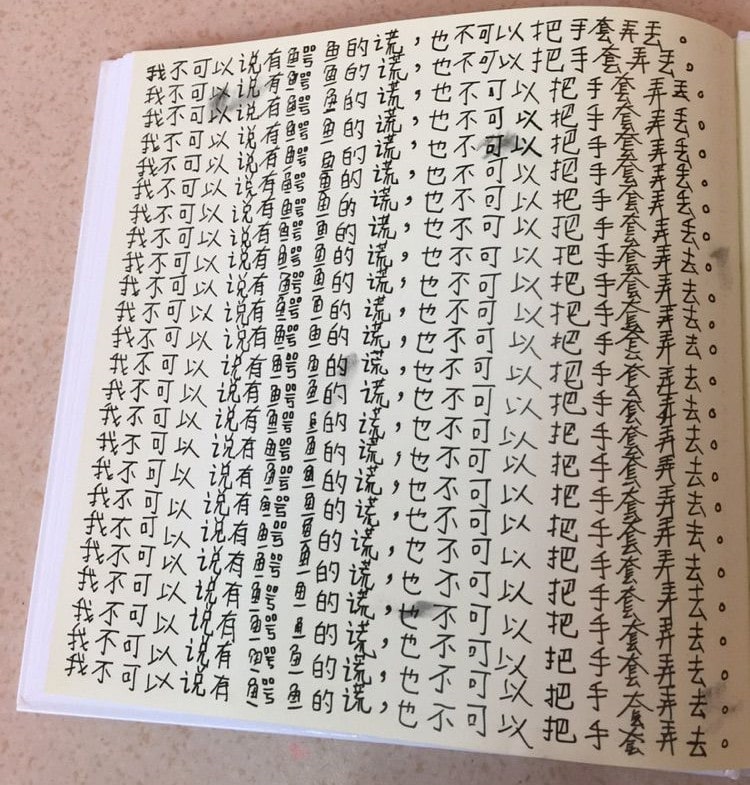 我不可以说有鳄鱼的谎，也不可以把手套弄丢。
我不可以说有鳄鱼的谎，也不可以把手套弄丢。
我不可以说有鳄鱼的谎，也不可以把手套弄丢。
我不可以说有鳄鱼的谎，也不可以把手套弄丢。
我不可以说有鳄鱼的谎，也不可以把手套弄丢。
我不可以说有鳄鱼的谎，也不可以把手套弄丢。
我不可以说有鳄鱼的谎，也不可以把手套弄丢。
我不可以说有鳄鱼的谎，也不可以把手套弄丢。
我不可以说有鳄鱼的谎，也不可以把手套弄去。
我不可以说有鳄鱼的谎，也不可以把手套弄去。
我不可以说有鳄鱼的谎，也不可以把手套弄去。
我不可以说有鳄鱼的谎，也不可以把手套弄去。
我不可以说有鳄鱼的谎，也不可以把手套弄去。
我不可以说有鳄鱼的谎，也不可以把手套弄去。
我不可以说有鳄鱼的谎，也不可以把手套弄去。
我不可以说有鳄鱼的谎，也不可以把手套弄去。
我不可以说有鳄鱼的谎，也不可以把手套弄去。
我不可以说有鳄鱼的谎，也不可以把手套弄去。
我不可以说有鳄鱼的谎，也不可以把手套弄去。
我不可以说有鳄鱼的谎，也不可以把手套弄去。
我不可以说有鳄鱼的谎，也不可以把手套弄去。
我不可以说有鳄鱼的谎，也不可以把手套弄去。
我不可以说有鳄鱼的谎，也不可以把手套弄去。
我不可以说有鳄鱼的谎，也不可以把手套弄去。